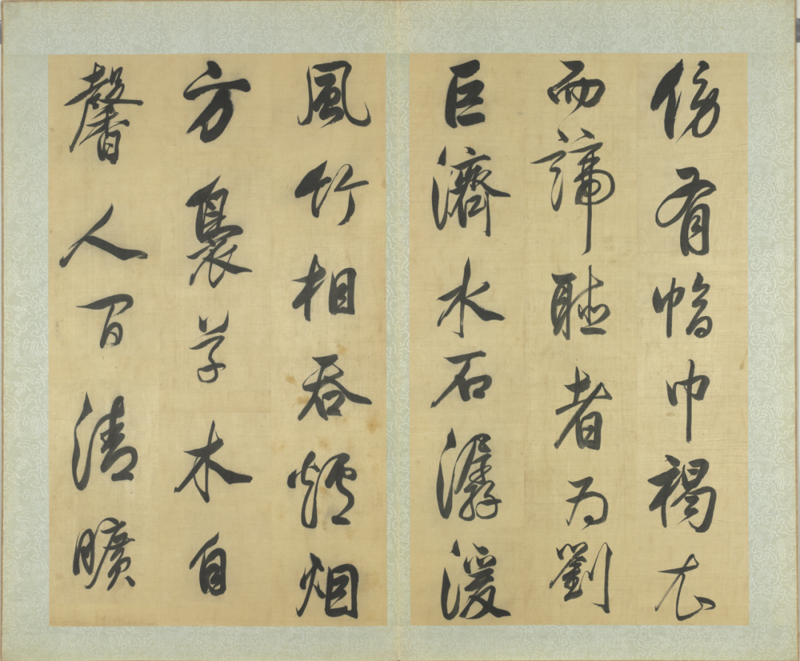 傍有幅巾褐衣
而諦聽者为劉
巨濟水石潺湲
風竹相吞爐烟
方裊草木自
馨人間清曠